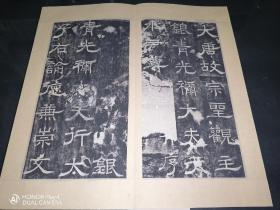 大唐故宗聖觀主
銀青光禰大夫天
序
銀
青光禰大夫行太
子右諭德兼崇文
HONOR Play4
DUAL CAMERA